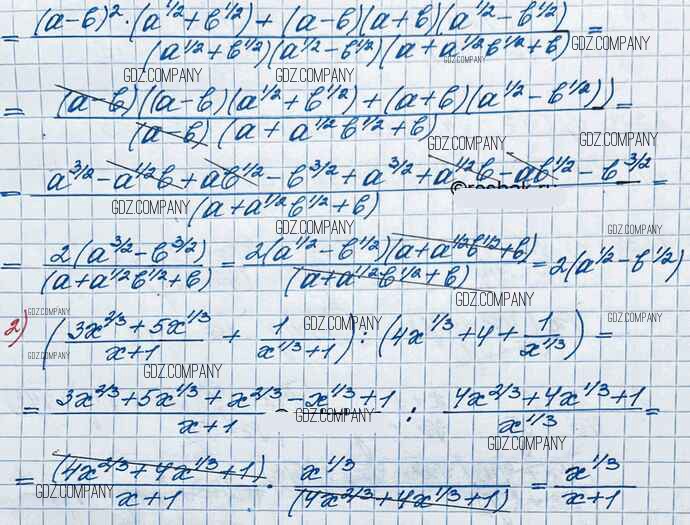 = (a-b)²·(a^1/2+b^1/2)+(a-b)(a+b)(a^1/2-b^1/2) / (a^1/2+b^1/2)(a^1/2-b^1/2)(a+a^1/2b^1/2+b) =
GDZ.COMPANY
GDZ.COMPANY
GDZ.COMPANY GDZ.COMPANY
= (a-b)((a-b)(a^1/2+b^1/2)+(a+b)(a^1/2-b^1/2)) / (a-b)(a+a^1/2b^1/2+b) =
GDZ.COMPANY GDZ.COMPANY
= a^3/2-a^1/2b+ab^1/2-b^3/2+a^3/2+a^1/2b-ab^1/2-b^3/2 / (a+a^1/2b^1/2+b) =
GDZ.COMPANY
GDZ.COMPANY GDZ.COMPANY
= 2(a^3/2-b^3/2) / (a+a^1/2b^1/2+b) = 2(a^1/2-b^1/2)(a+a^1/2b^1/2+b) / (a+a^1/2b^1/2+b) = 2(a^1/2-b^1/2)
GDZ.COMPANY
GDZ.COMPANY GDZ.COMPANY GDZ.COMPANY
2) (3x^2/3+5x^1/3 / x+1 + 1 / x^1/3+1) : (4x^1/3+4+1 / x^1/3) =
GDZ.COMPANY
GDZ.COMPANY
= 3x^2/3+5x^1/3+x^2/3-x^1/3+1 / x+1 : 4x^2/3+4x^1/3+1 / x^1/3 =
GDZ.COMPANY
GDZ.COMPANY
= (4x^2/3+4x^1/3+1) / x+1 · x^1/3 / (4x^2/3+4x^1/3+1) = x^1/3 / x+1
GDZ.COMPANY GDZ.COMPANY